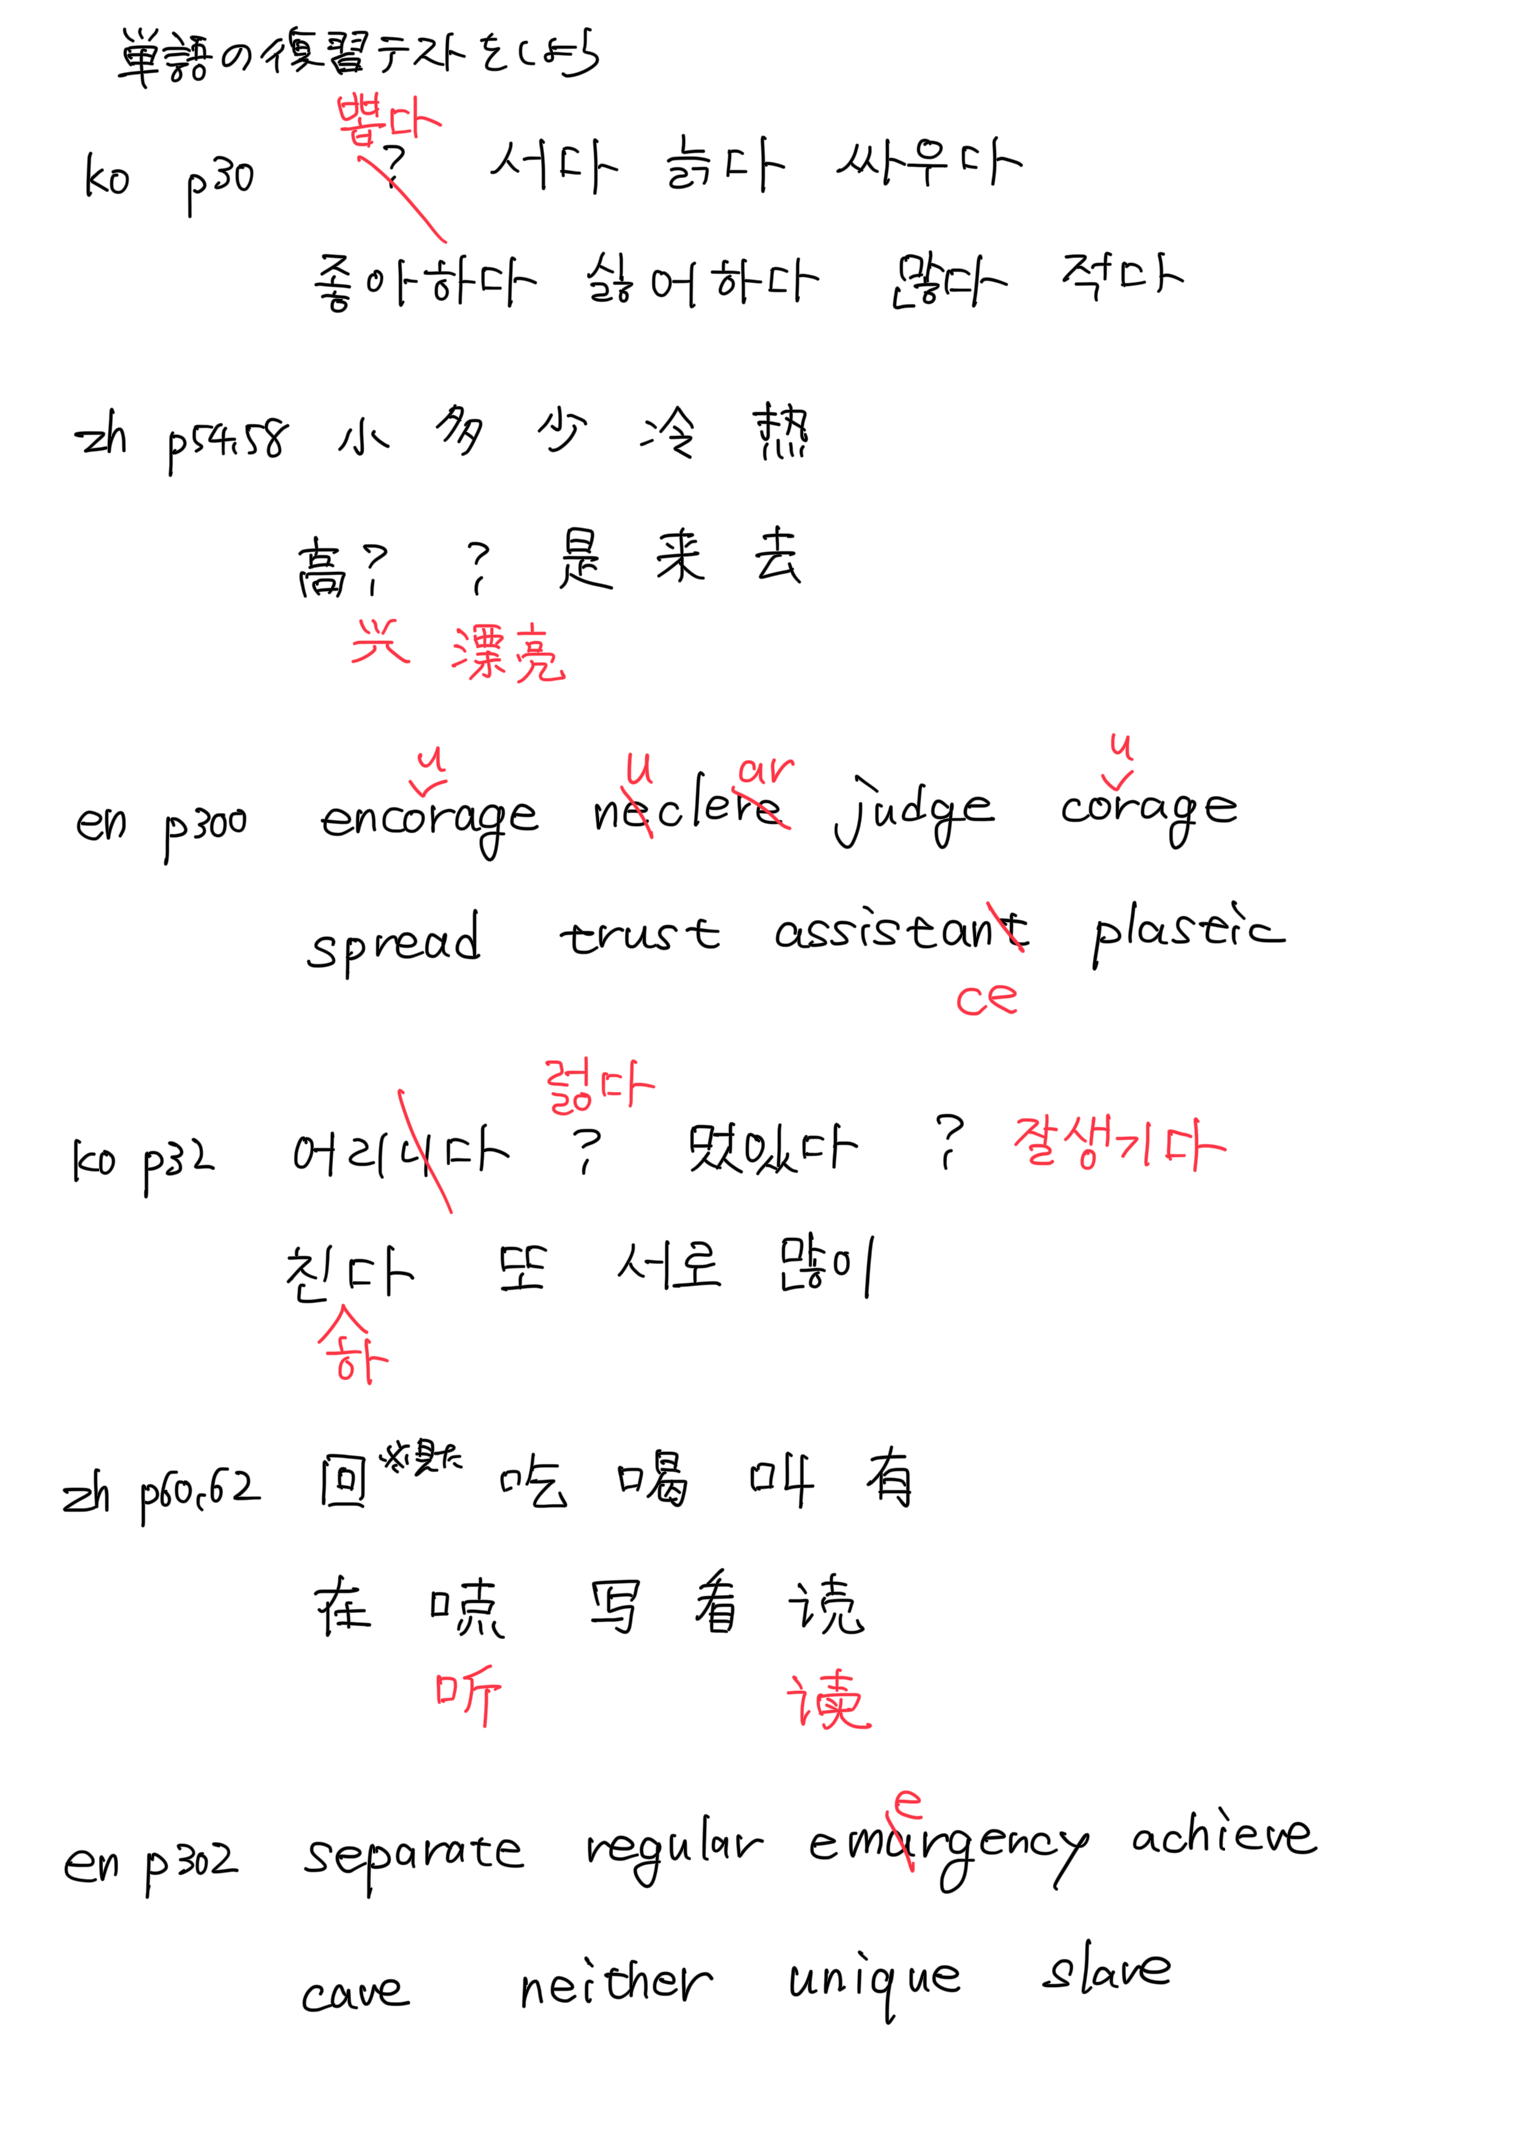 単語の復習テストをしよう
뽑다
ko p30 ? 서다 늙다 싸우다
좋아하다 싫어하다 많다 적다
zh p54.58 小 多 少 冷 热
高? ? 是 来 去
兴 漂亮
u u ar u
en p300 encorage neclere judge corage
spread trust assistant plastic
ce
렇다
ko p32 어리니다 ? 멌있다 ? 잘생기다
친다 또 서로 많이
하
zh p60.62 回 ※見た 吃 喝 叫 有
在 写 看 读
听 读
e
en p302 separate regular emargency achieve
cave neither unique slave